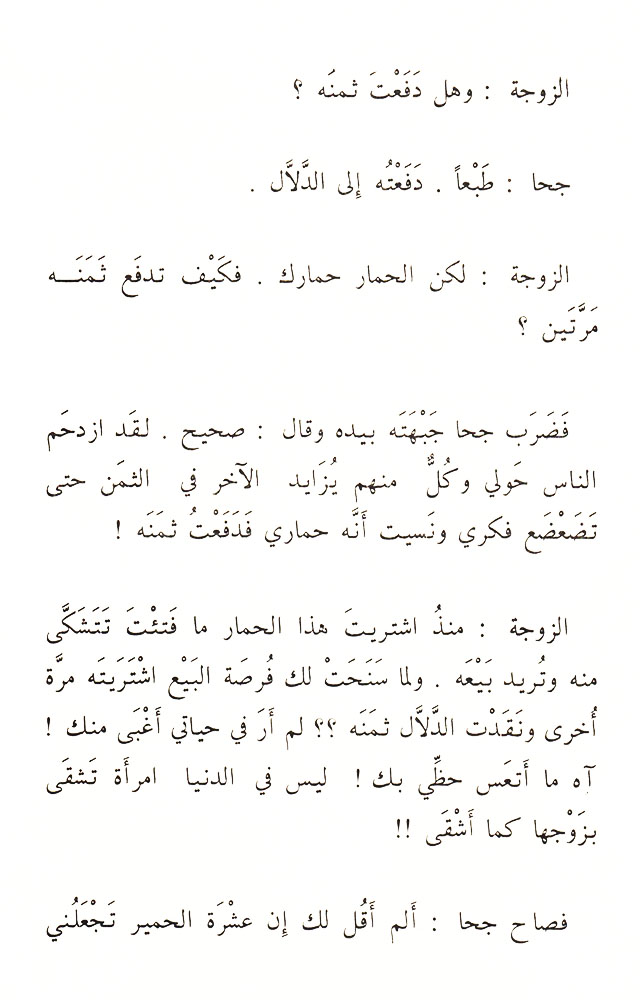 الزوجة : وهل دَفَعْتَ ثمنَه ؟
جحا : طَبْعاً . دَفَعْتُه إِلى الدَّلاَّل .
الزوجة : لكن الحمار حمارك . فكَيْف تدفَع ثَمَنَـــه
مَرَّتَين ؟
فَضَرَب جحا جَبْهَتَه بيده وقال : صحيح . لقَد ازدحَم
الناس حَولي وكُلٌّ منهم يُزَايد الآخر في الثمَن حتى
تَضَعْضَع فكري ونَسيت أَنَّه حماري فَدَفَعْتُ ثمَنَه !
الزوجة : منذُ اشتريتَ هذا الحمار ما فَتئْتَ تَتَشَكَّى
منه وتُريد بَيْعَه . ولما سَنَحَتْ لك فُرصَة البَيْع اشْتَرَيتَه مرَّة
أُخرى ونَقَدْت الدَّلاَّل ثمَنَه ؟؟ لم أَرَ في حياتي أَغْبَى منك !
آه ما أَتعَس حظِّي بك ! ليس في الدنيا امرأَة تَشقَى
بزَوْجها كما أَشْقَى !!
فصاح جحا : أَلم أَقُل لك إِن عشْرَة الحمير تَجْعَلُني